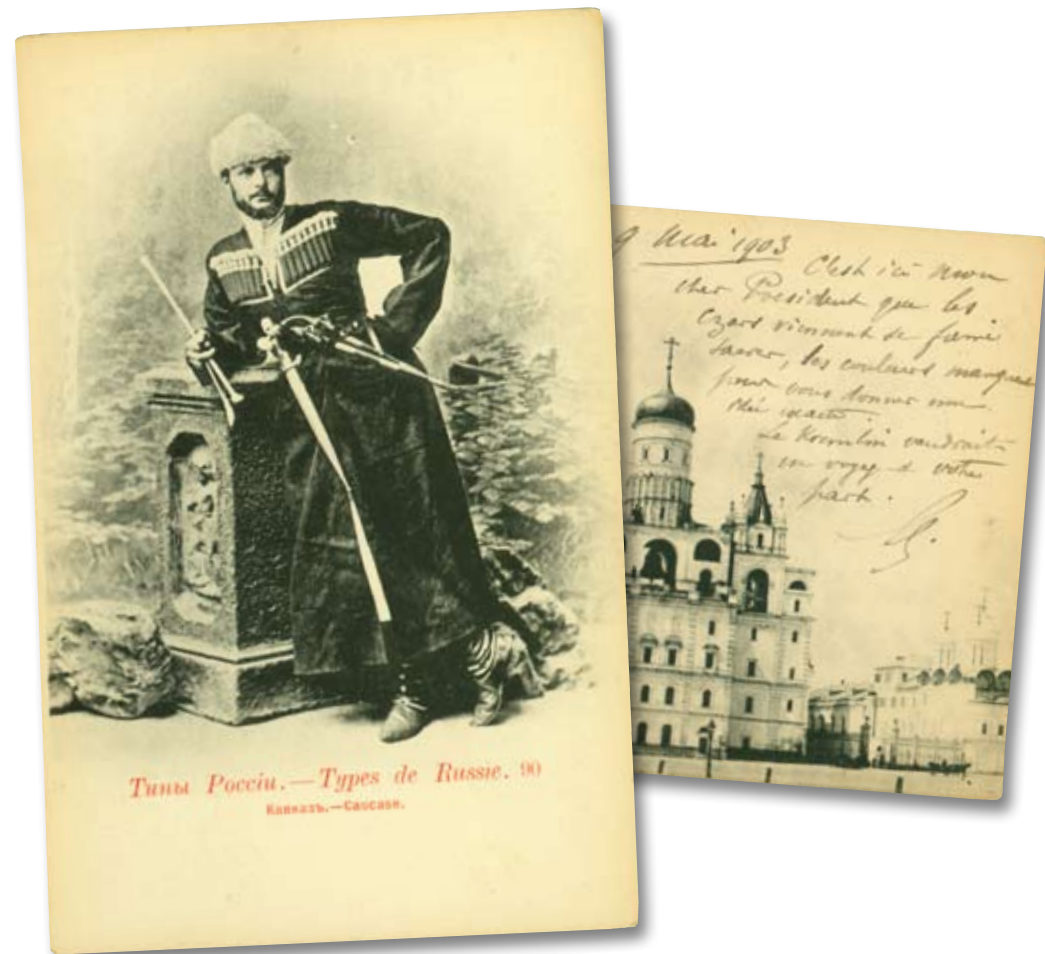 Типы Россіи.—Types de Russie. 90
Кавказъ.—Caucase.
9 Mai 1903
C'est ici mon
cher President que les
Czars viennent se faire
sacrer, les couleurs manquent
pour vous donner une
idée exacte
Le Kremlin vaudrait
un voyage de votre
part.